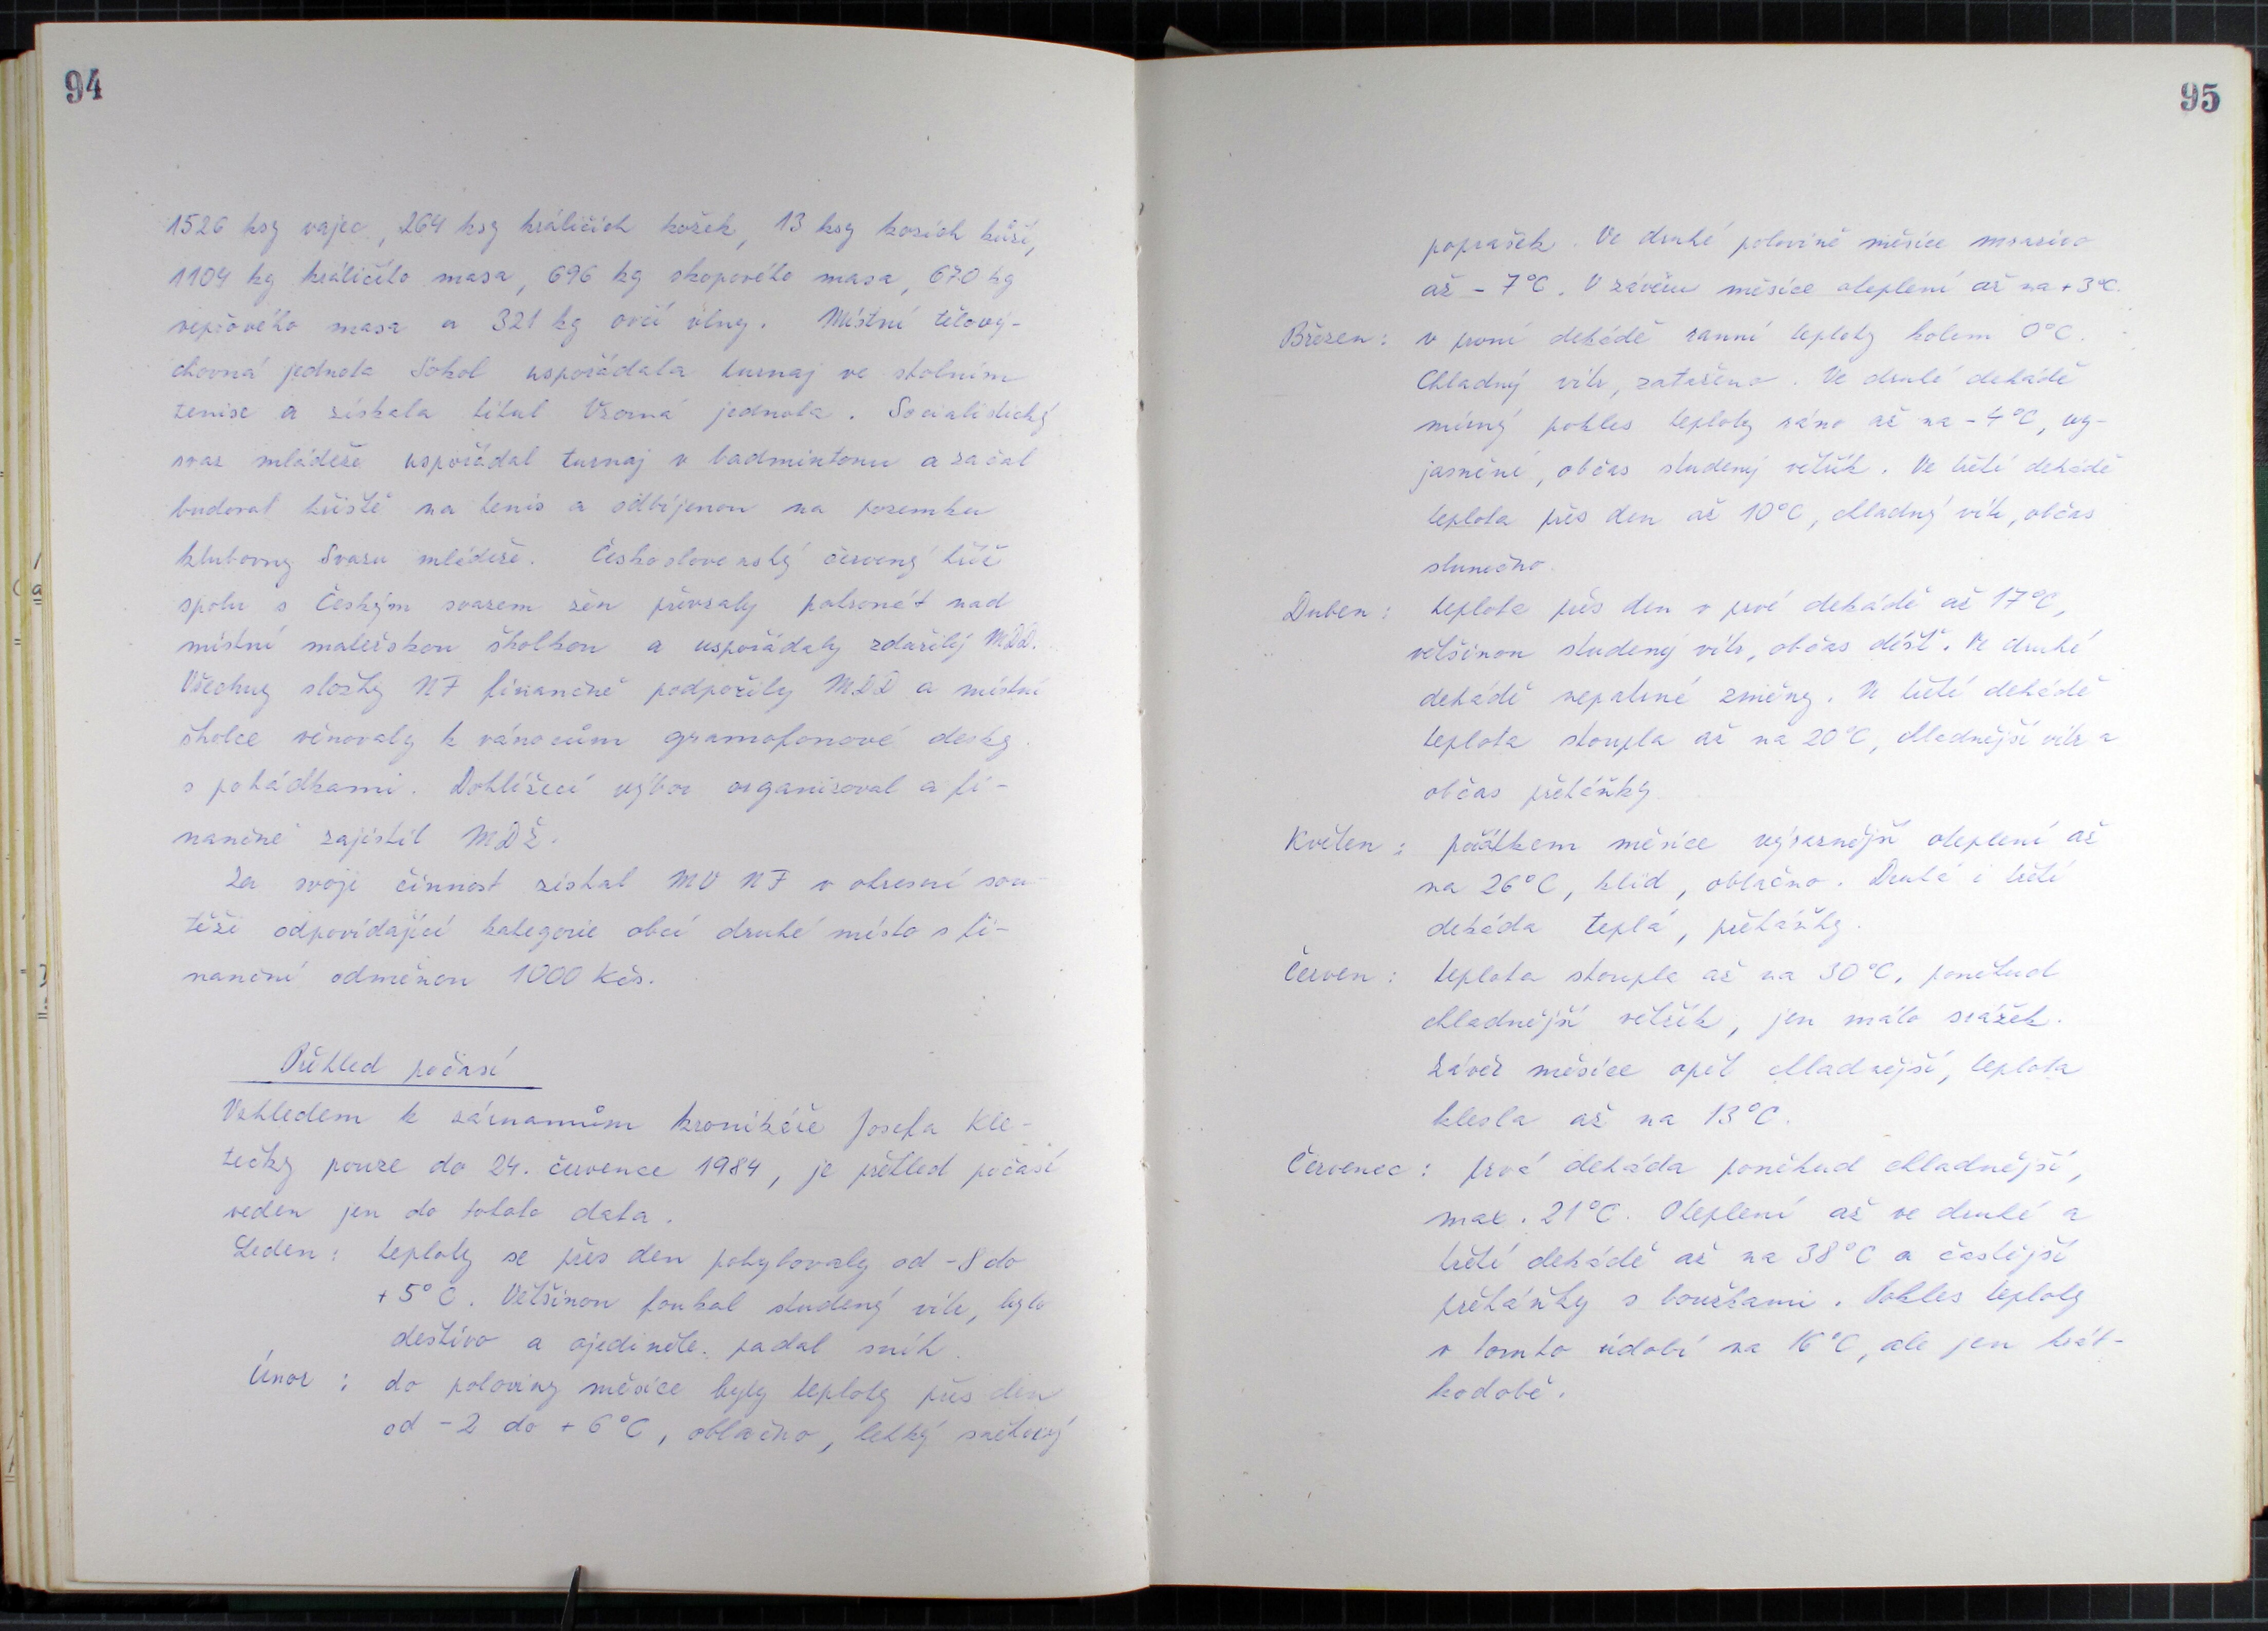 94
1526 ksy vajec, 264 ksy králičích kožek, 13 ksy kozích kůží,
1104 kg králičího masa, 696 kg skopového masa, 670 kg
vepřového masa a 321 kg ovčí vlny. Místní tělový-
chovná jednota Sokol uspořádala turnaj ve stolním
tenise a získala titul Vzorná jednota. Socialistický
svaz mládeže uspořádal turnaj v badmintonu a začal
budovat hřiště na tenis a odbíjenou na pozemku
klubovny Svazu mládeže. Československý červený kříž
spolu s Českým svazem žen převzaly patronát nad
místní mateřskou školkou a uspořádaly zdařilý MDD.
Všechny složky NF finančně podpořily MDD a místní
školce věnovaly k vánocům gramofonové desky
s pohádkami. Dohlížecí výbor organizoval a fi-
nančně zajistil MDŽ.
Za svoji činnost získal MV NF v okresní sou-
těži odpovídající kategorie obcí druhé místo s fi-
nanční odměnou 1000 Kčs.
Přehled počasí
Vzhledem k záznamům kronikáře Josefa Kle-
tečky pouze do 24. července 1984, je přehled počasí
veden jen do tohoto data.
Leden: teploty se přes den pohybovaly od -8 do
+5°C. Většinou foukal studený vítr, bylo
deštivo a ojediněle padal sníh.
Únor: do poloviny měsíce byly teploty přes den
od -2 do +6°C, oblačno, lehký sněhový
95
poprašek. Ve druhé polovině měsíce mrazivo
až -7°C. V závěru měsíce oteplení až na +3°C.
Březen: v první dekádě ranní teploty kolem 0°C.
Chladný vítr, zataženo. Ve druhé dekádě
mírný pokles teploty ráno až na -4°C, vy-
jasnění, občas studený větřík. Ve třetí dekádě
teplota přes den až 10°C, chladný vítr, občas
slunečno.
Duben: teplota přes den v prvé dekádě až 17°C,
většinou studený vítr, občas déšť. Ve druhé
dekádě nepatrné změny. Ve třetí dekádě
teplota stoupla až na 20°C, chladnější vítr a
občas přeháňky.
Květen: počátkem měsíce výraznější oteplení až
na 26°C, klid, oblačno. Druhá i třetí
dekáda teplá, přeháňky.
Červen: teplota stoupla až na 30°C, poněkud
chladnější větřík, jen málo srážek.
Závěr měsíce opět chladnější, teplota
klesla až na 13°C.
Červenec: prvá dekáda poněkud chladnější,
max. 21°C. Oteplení až ve druhé a
třetí dekádě až na 38°C a častější
přeháňky s bouřkami. Pokles teploty
v tomto údobí na 16°C, ale jen krát-
kodobě.